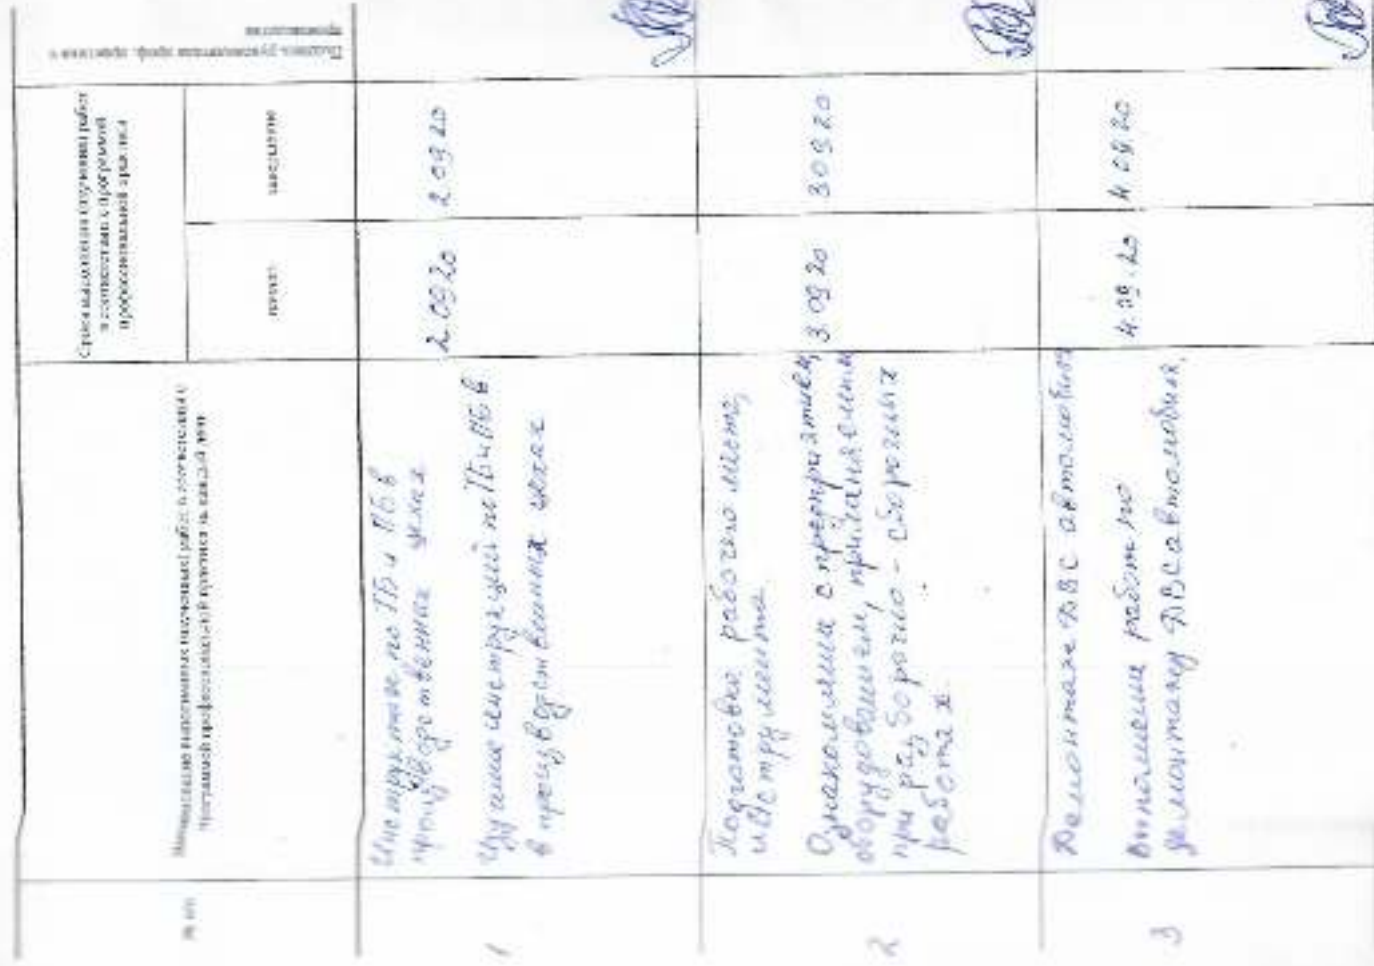 № п/п
Наименование выполняемых (изучаемых) работ в соответствии с
программой профессиональной практики за каждый день
Сроки выполнения (изучения) работ
в соответствии с программой
профессиональной практики
начало
завершение
Подпись руководителя проф. практики с
производства
1
Инструктаж по ТБ и ПБ в
производственных цехах
Изучение инструкций по ТБ и ПБ в
в производственных цехах
2.09.20
2.09.20
2
Подготовка рабочего места,
инструмента
Ознакомление с предприятием,
оборудованием, применяемым
при разборочно-сборочных
работах.
3.09.20
3.09.20
3
Демонтаж ДВС автомобиля
Выполнение работ по
демонтажу ДВС автомобиля.
4.09.20
4.09.20